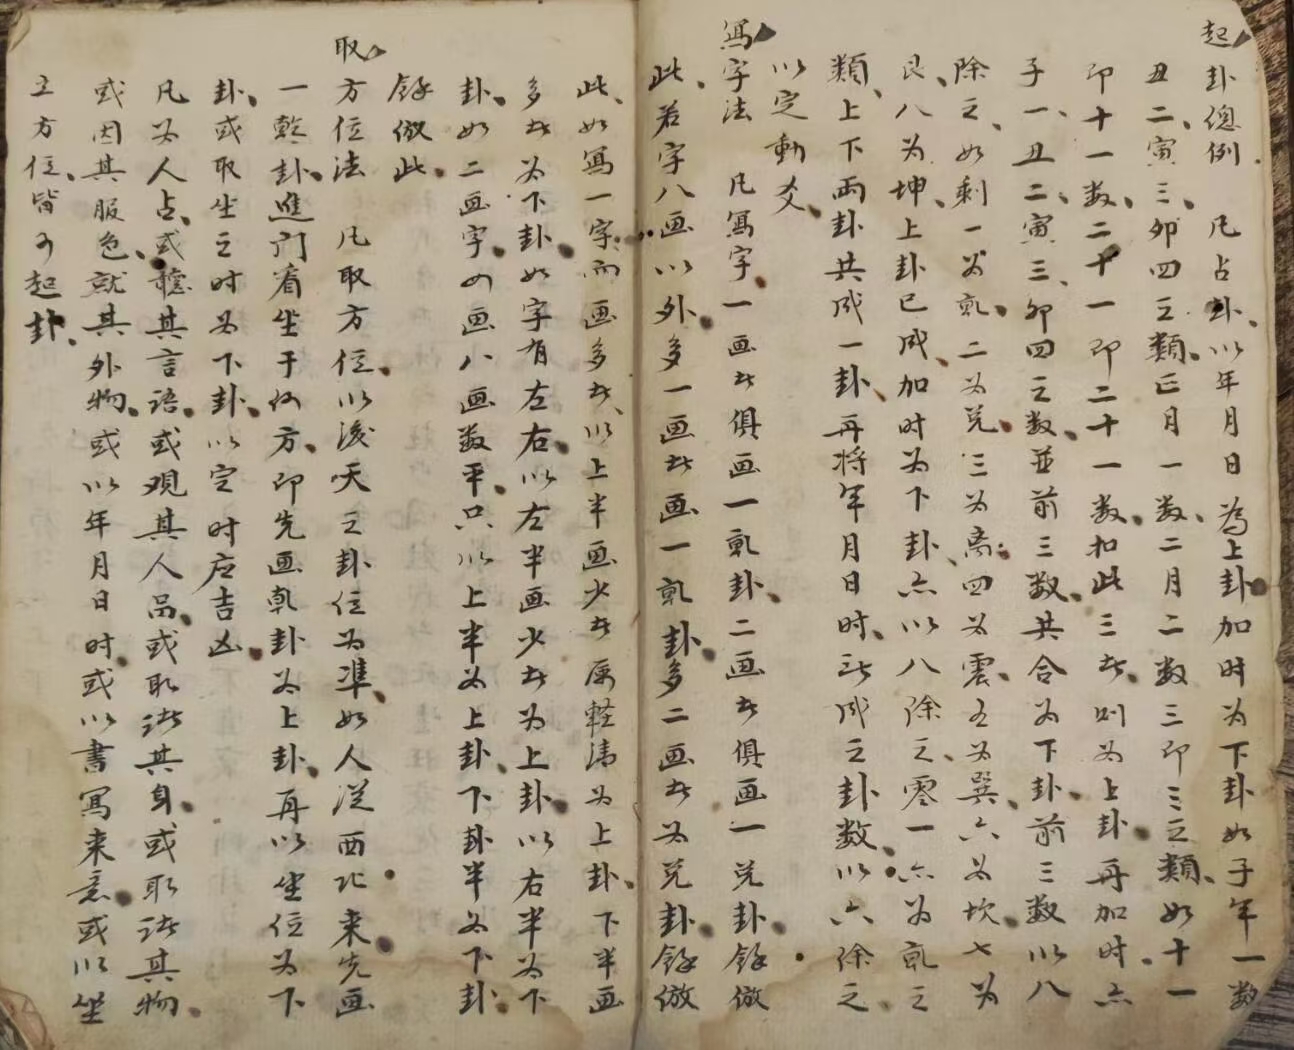 起卦總例 凡占卦以年月日為上卦加时为下卦如子年一数
丑二寅三卯四之類正月一数二月二数三即三之類如十一
即十一数二十一即二十一数扣此三者则为上卦再加时亦
子一丑二寅三卯四之数並前三数共合为下卦前三数以八
除之如剩一为乾二为兑三为离四为震五为巽六为坎七为
艮八为坤上卦已成加时为下卦亦以八除之零一亦为乾之
類上下两卦共成一卦再将年月日时所成之卦数以六除之
以定動爻
寫字法 凡寫字一画者俱画一乾卦二画者俱画一兑卦餘倣
此若字八画以外多一画者画一乾卦多二画者为兑卦餘倣
此如寫一字而画多者以上半画少者属轻清为上卦下半画
多者为下卦如字有左右以左半画少者为上卦以右半为下
卦如二画字四画八画数平只以上半为上卦下卦半为下卦
餘倣此
取方位法 凡取方位以後天之卦位为準如人從西北来先画
一乾卦進门看坐于何方即先画乾卦为上卦再以坐位为下
卦或取坐之时为下卦以定时应吉凶
凡为人占或聽其言語或观其人品或取诸其身或取诸其物
或因其服色就其外物或以年月日时或以書寫来意或以坐
立方位皆可起卦